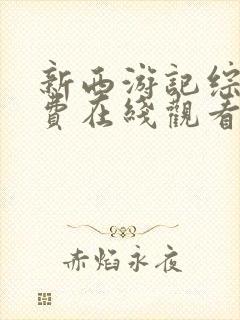 新西游記綜
費在綫觀看
赤焰永夜